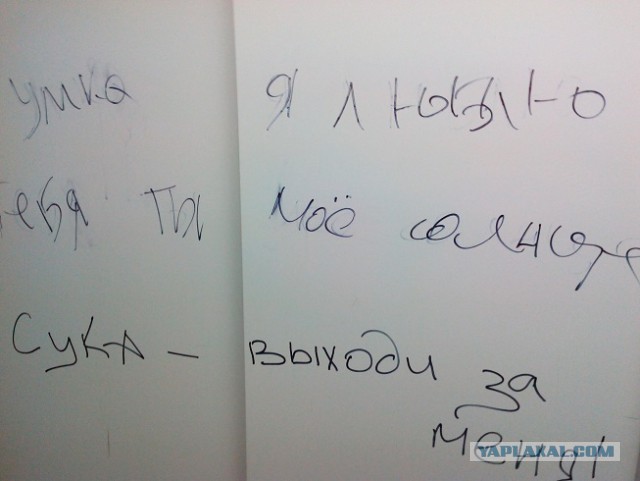 умка я люблю
тебя ты моё солнце
Сука - выходи за
меня
YAPLAKAL.COM